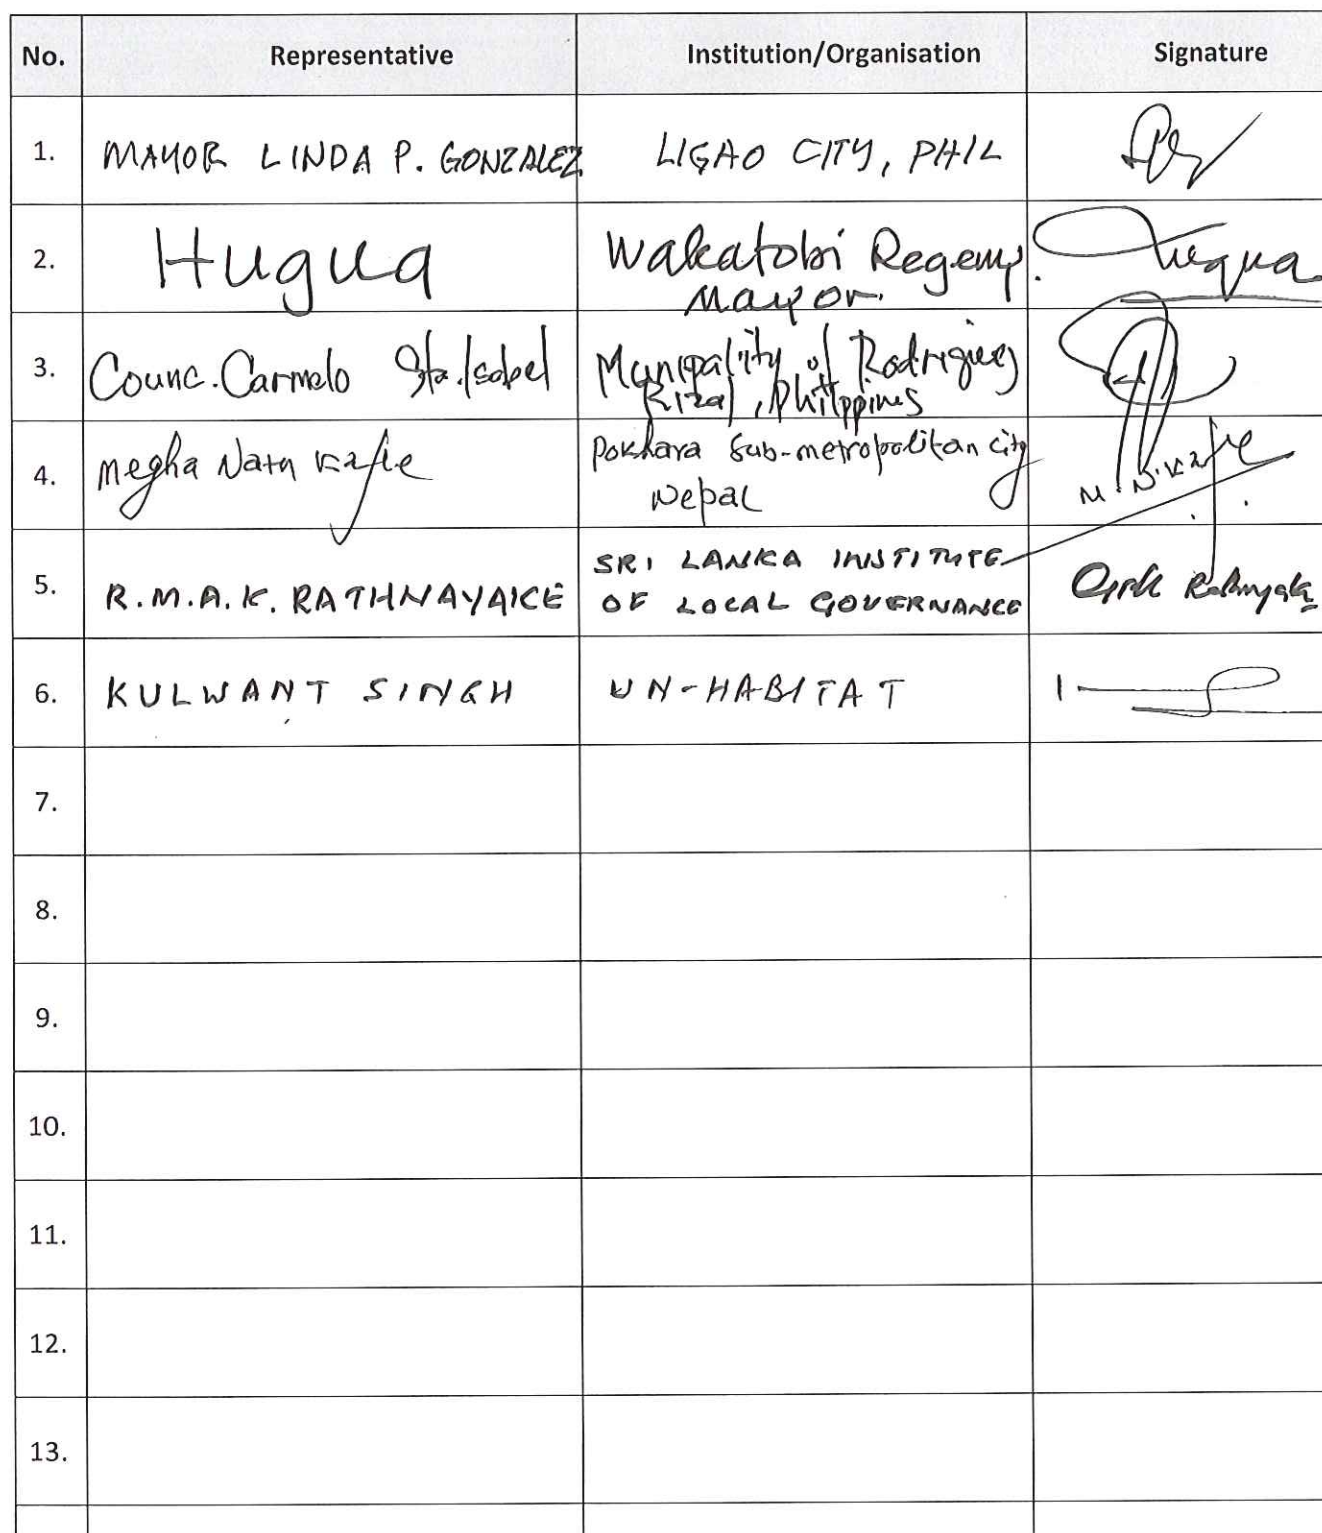 No. Representative Institution/Organisation Signature
1. MAYOR LINDA P. GONZALEZ LIGAO CITY, PHIL
2. Hugua Wakatobi Regency Hugua
Mayor.
3. Counc. Carmelo Sta. Isabel Municipality of Rodriguez
Rizal, Philippines
4. Megha Nath Kafle Pokhara Sub-metropolitan city M.N. Kafle
Nepal
5. R.M.A.K. RATHNAYAKE SRI LANKA INSTITUTE
OF LOCAL GOVERNANCE
6. KULWANT SINGH UN-HABITAT
7.
8.
9.
10.
11.
12.
13.